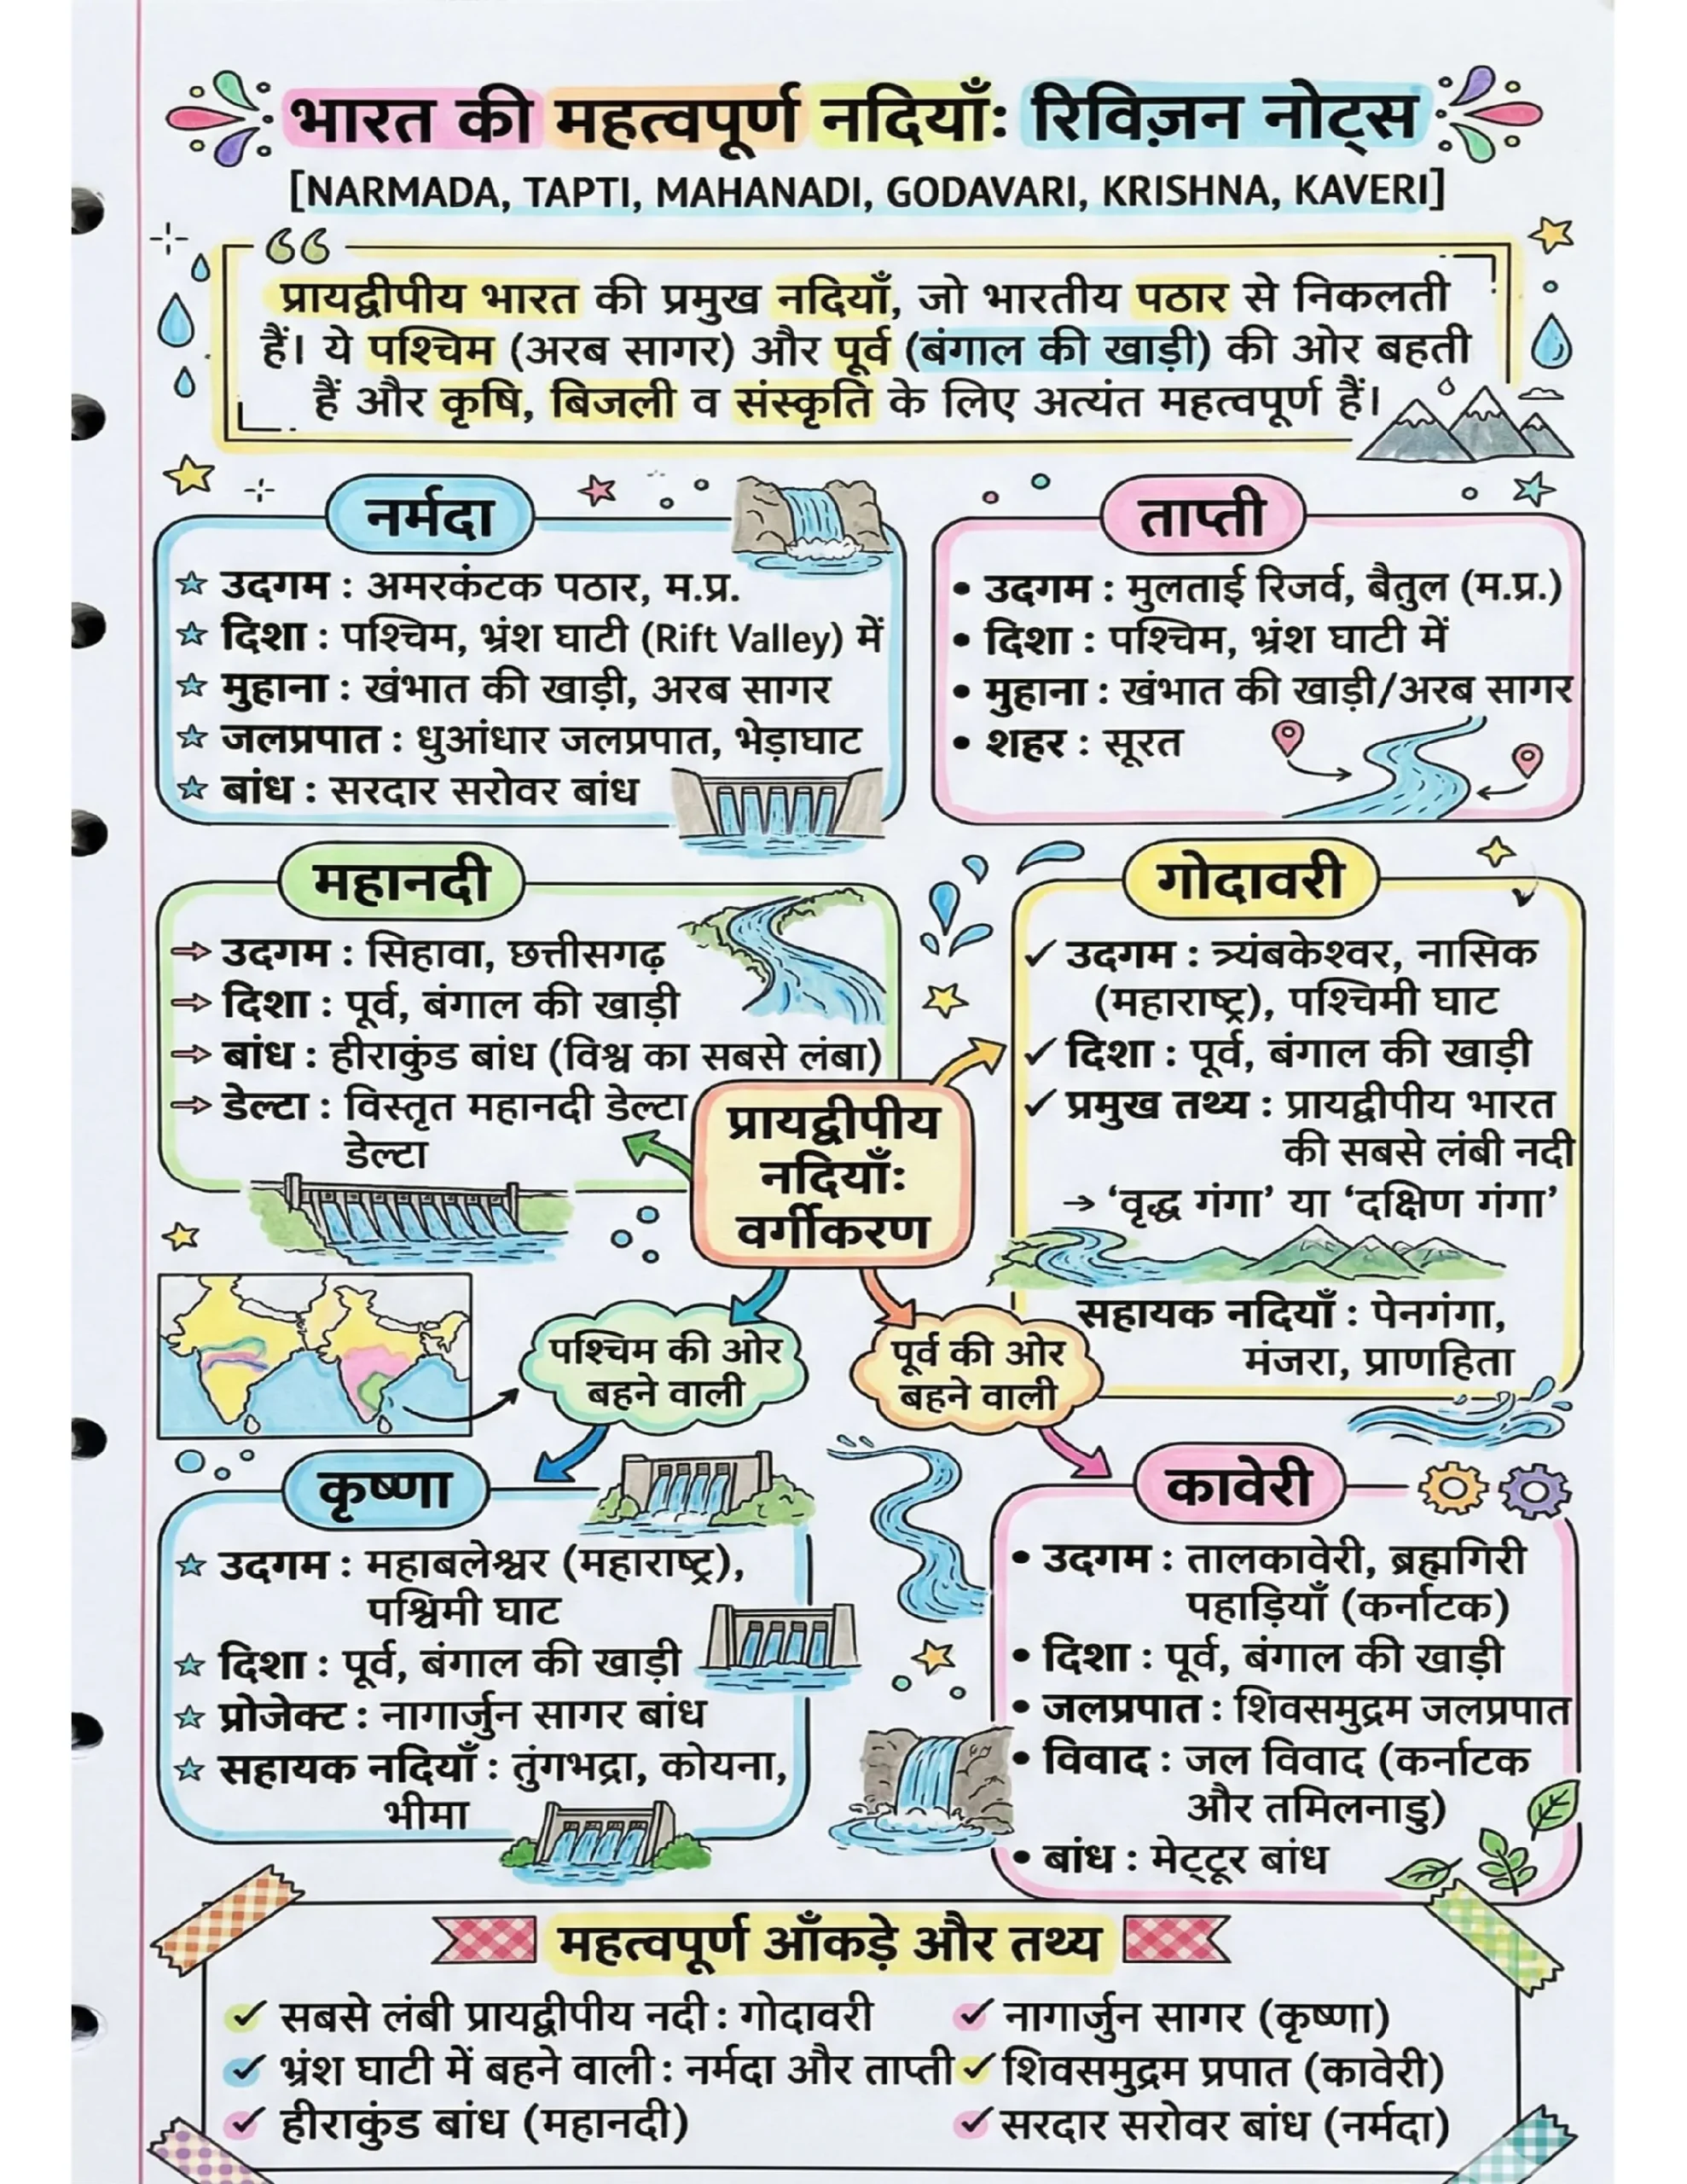 भारत की महत्वपूर्ण नदियाँ: रिविज़न नोट्स
[NARMADA, TAPTI, MAHANADI, GODAVARI, KRISHNA, KAVERI]
प्रायद्वीपीय भारत की प्रमुख नदियाँ, जो भारतीय पठार से निकलती
हैं। ये पश्चिम (अरब सागर) और पूर्व (बंगाल की खाड़ी) की ओर बहती
हैं और कृषि, बिजली व संस्कृति के लिए अत्यंत महत्वपूर्ण हैं।
नर्मदा
उदगम : अमरकंटक पठार, म.प्र.
दिशा : पश्चिम, भ्रंश घाटी (Rift Valley) में
मुहाना : खंभात की खाड़ी, अरब सागर
जलप्रपात : धुआंधार जलप्रपात, भेड़ाघाट
बांध : सरदार सरोवर बांध
ताप्ती
• उदगम : मुलताई रिजर्व, बैतुल (म.प्र.)
• दिशा : पश्चिम, भ्रंश घाटी में
• मुहाना : खंभात की खाड़ी/अरब सागर
• शहर : सूरत
महानदी
→ उदगम : सिहावा, छत्तीसगढ़
→ दिशा : पूर्व, बंगाल की खाड़ी
→ बांध : हीराकुंड बांध (विश्व का सबसे लंबा)
→ डेल्टा : विस्तृत महानदी डेल्टा
डेल्टा
गोदावरी
✓ उदगम : त्र्यंबकेश्वर, नासिक
(महाराष्ट्र), पश्चिमी घाट
✓ दिशा : पूर्व, बंगाल की खाड़ी
✓ प्रमुख तथ्य : प्रायद्वीपीय भारत
की सबसे लंबी नदी
→ ‘वृद्ध गंगा’ या ‘दक्षिण गंगा’
सहायक नदियाँ : पेनगंगा,
मंजरा, प्राणहिता
प्रायद्वीपीय
नदियाँ:
वर्गीकरण
पश्चिम की ओर
बहने वाली
पूर्व की ओर
बहने वाली
कृष्णा
उदगम : महाबलेश्वर (महाराष्ट्र),
पश्विमी घाट
दिशा : पूर्व, बंगाल की खाड़ी
प्रोजेक्ट : नागार्जुन सागर बांध
सहायक नदियाँ : तुंगभद्रा, कोयना,
भीमा
कावेरी
• उदगम : तालकावेरी, ब्रह्मगिरी
पहाड़ियाँ (कर्नाटक)
• दिशा : पूर्व, बंगाल की खाड़ी
• जलप्रपात : शिवसमुद्रम जलप्रपात
• विवाद : जल विवाद (कर्नाटक
और तमिलनाडु)
• बांध : मेट्टूर बांध
महत्वपूर्ण आँकड़े और तथ्य
✓ सबसे लंबी प्रायद्वीपीय नदी : गोदावरी
✓ भ्रंश घाटी में बहने वाली : नर्मदा और ताप्ती
✓ हीराकुंड बांध (महानदी)
✓ नागार्जुन सागर (कृष्णा)
✓ शिवसमुद्रम प्रपात (कावेरी)
✓ सरदार सरोवर बांध (नर्मदा)